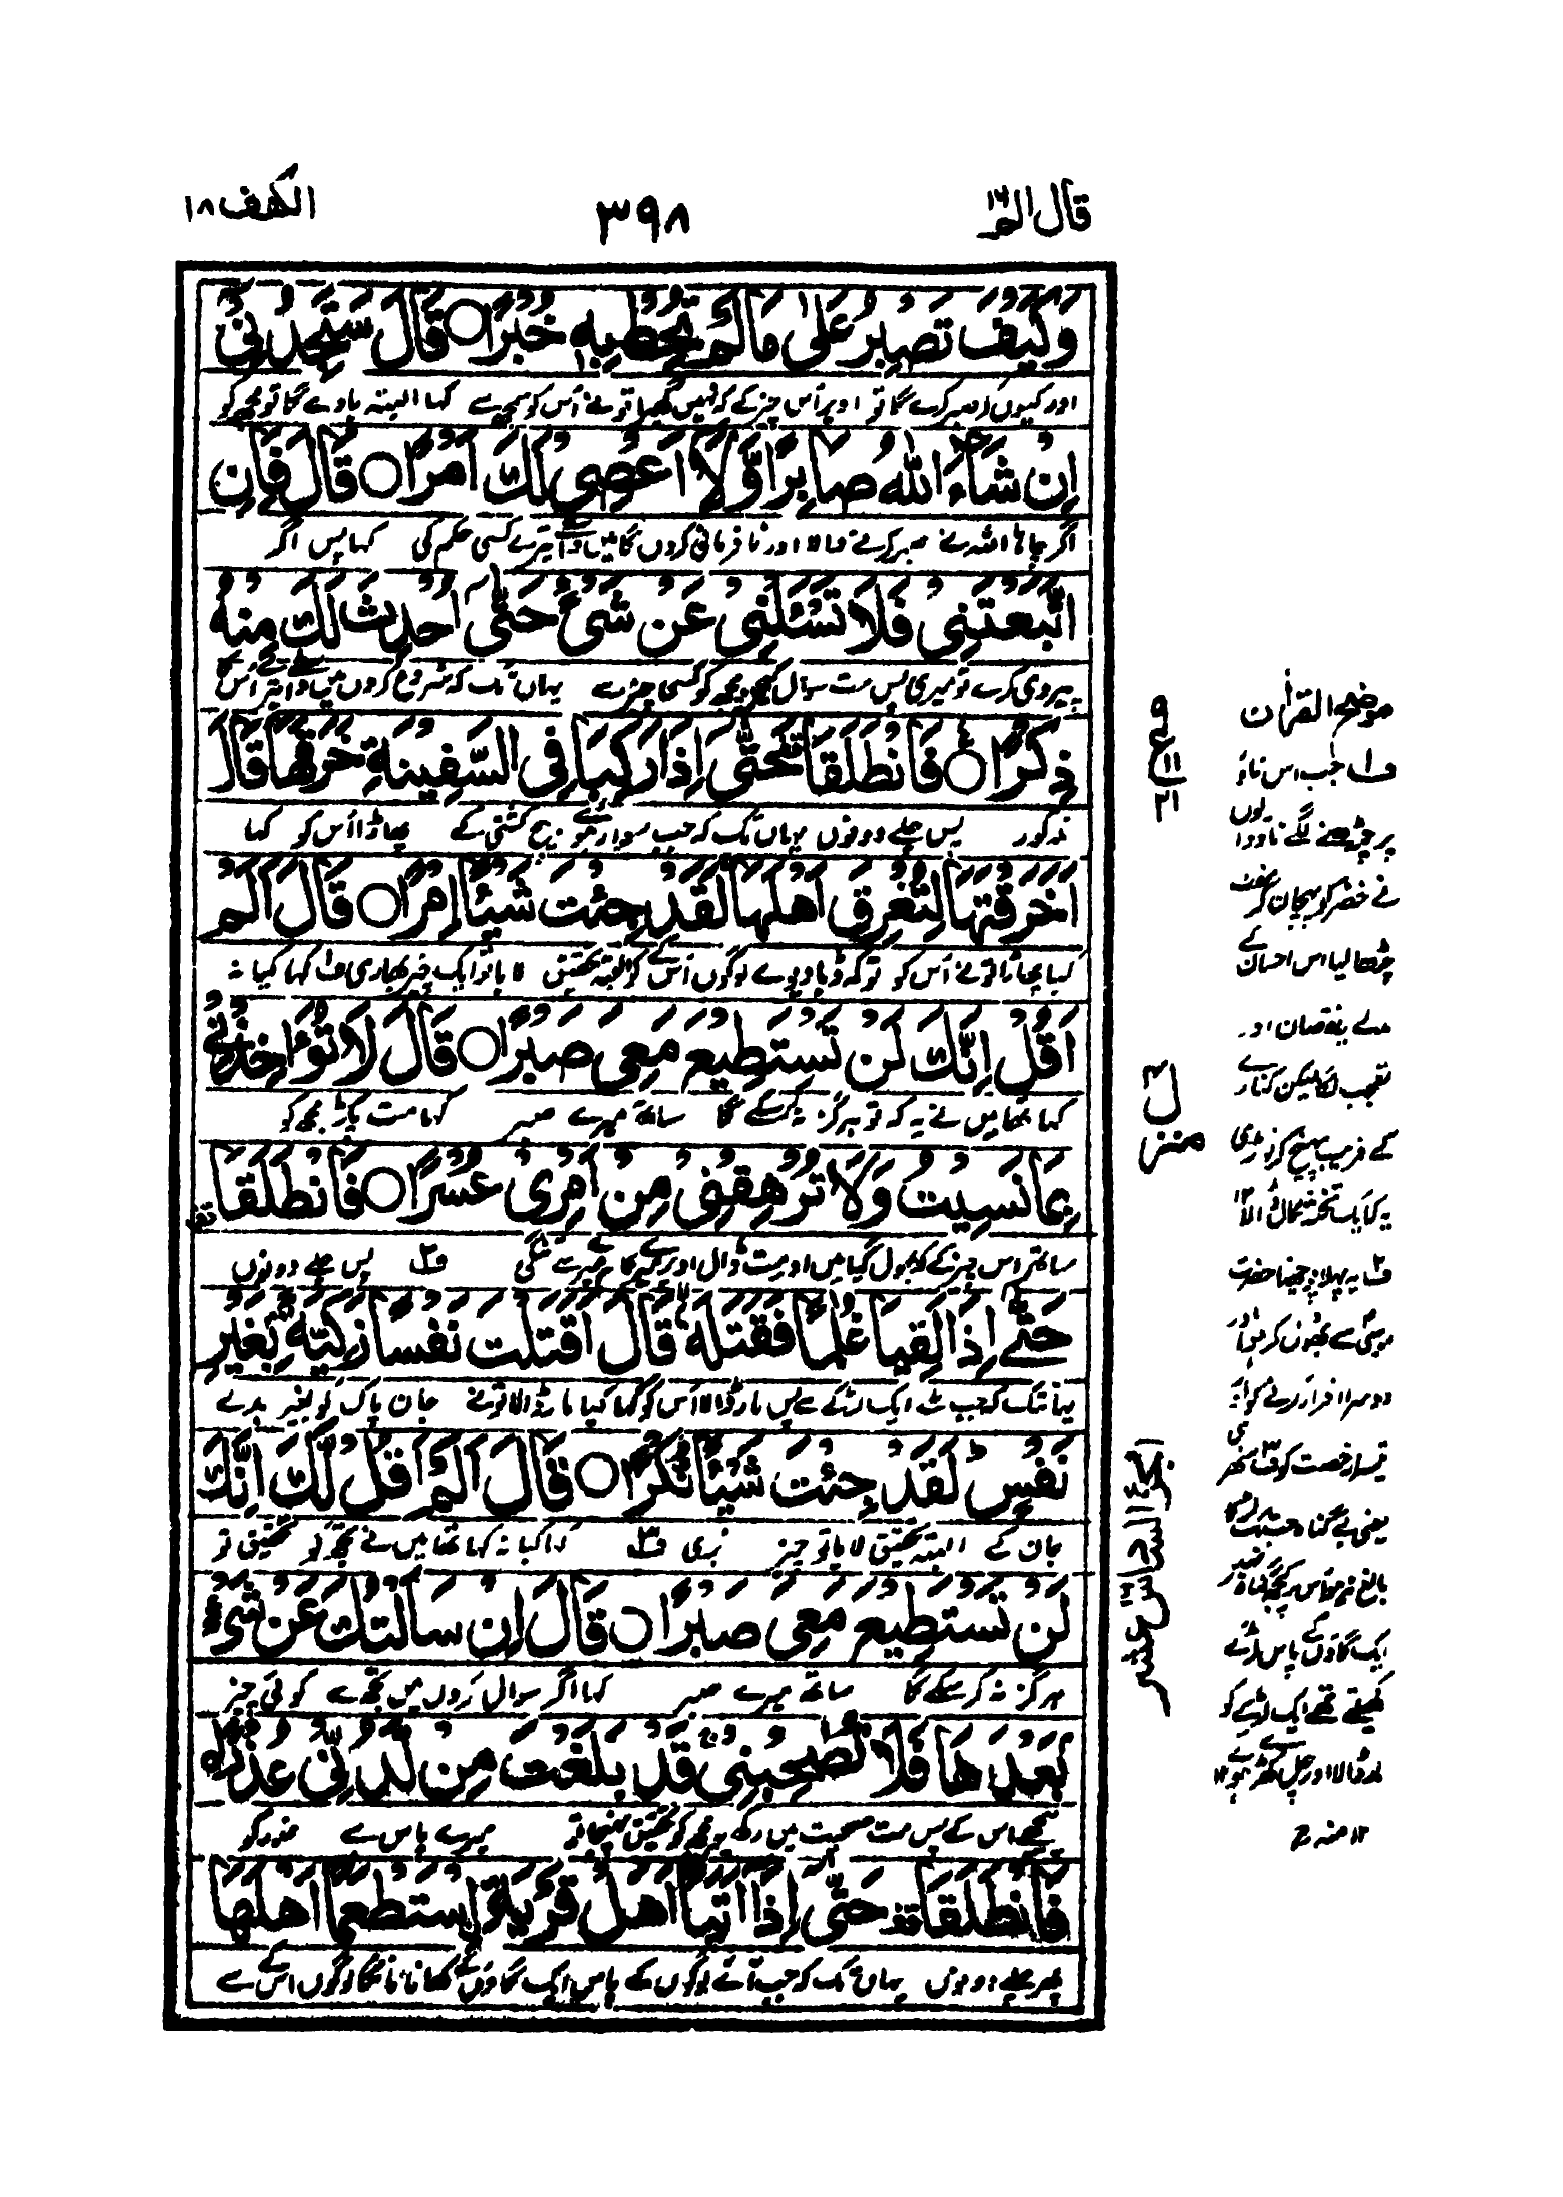 قال الم ۱۶
۳۹۸
الکهف ۱۸
وَكَيْفَ تَصْبِرُ عَلٰى مَا لَمْ تُحِطْ بِهٖ خُبْرًا ○ قَالَ سَتَجِدُنِيْ
اور کیوں کر صبر کرے گا تو اوپر اس چیز کے کہ نہیں گھیرا تو نے اُس کو سمجھ سے کہا البتہ پاوے گا تو مجھ کو
اِنْ شَآءَ اللّٰهُ صَابِرًا وَّلَاۤ اَعْصِيْ لَكَ اَمْرًا ○ قَالَ فَاِنِ
اگر چاہا اللہ نے صبر کرنے والا اور نا فرمانی کروں گا میں واسطے تیرے کسی حکم کی کہا پس اگر
اتَّبَعْتَنِيْ فَلَا تَسْـَٔلْنِيْ عَنْ شَيْءٍ حَتّٰۤى اُحْدِثَ لَكَ مِنْهُ
پیروی کرے تو میری پس مت سوال کیجو مجھ کو کسی چیز سے یہاں تک کہ شروع کروں میں واسطے تیرے اُس سے
ذِكْرًا ○ فَانْطَلَقَا حَتّٰۤى اِذَا رَكِبَا فِي السَّفِيْنَةِ خَرَقَهَا قَالَ
مذکور پس چلے دونوں یہاں تک کہ جب سوار ہوئے بیچ کشتی کے پھاڑا اُس کو کہا
اَخَرَقْتَهَا لِتُغْرِقَ اَهْلَهَا لَقَدْ جِئْتَ شَيْـًٔا اِمْرًا ○ قَالَ اَلَمْ
کیا پھاڑا تو نے اُس کو تو کہ ڈبا دیوے لوگوں اُس کے کو البتہ تحقیق لایا تو ایک چیز بھاری ف۱ کہا کیا نہ
اَقُلْ اِنَّكَ لَنْ تَسْتَطِيْعَ مَعِيَ صَبْرًا ○ قَالَ لَا تُؤَاخِذْنِيْ
کہا تھا میں نے یہ کہ تو ہرگز نہ کر سکے گا ساتھ میرے صبر کہا مت پکڑ مجھ کو
بِمَا نَسِيْتُ وَلَا تُرْهِقْنِيْ مِنْ اَمْرِيْ عُسْرًا ○ فَانْطَلَقَا
ساتھ اس چیز کے کہ بھول گیا میں اور مت ڈال اوپر میرے کام میرے سے تنگی ف۲ پس چلے دونوں
حَتّٰۤى اِذَا لَقِيَا غُلٰمًا فَقَتَلَهٗ قَالَ اَقَتَلْتَ نَفْسًا زَكِيَّةً بِغَيْرِ
یہاں تک کہ جب ملے ایک لڑکے سے پس مار ڈالا اُس کو کہا کیا مار ڈالا تو نے جان پاک کو بغیر بدلے
نَفْسٍ لَقَدْ جِئْتَ شَيْـًٔا نُّكْرًا ○ قَالَ اَلَمْ اَقُلْ لَّكَ اِنَّكَ
جان کے البتہ تحقیق لایا تو چیز بُری ف۳ کہا کیا نہ کہا تھا میں نے تجھ کو تحقیق تو
لَنْ تَسْتَطِيْعَ مَعِيَ صَبْرًا ○ قَالَ اِنْ سَاَلْتُكَ عَنْ شَيْءٍ
ہرگز نہ کر سکے گا ساتھ میرے صبر کہا اگر سوال کروں میں تجھ سے کوئی چیز
بَعْدَهَا فَلَا تُصٰحِبْنِيْ قَدْ بَلَغْتَ مِنْ لَّدُنِّيْ عُذْرًا
پیچھے اس کے پس مت صحبت میں رکھیو مجھ کو تحقیق پہنچا تو میرے پاس سے عذر کو
فَانْطَلَقَا حَتّٰۤى اِذَاۤ اَتَيَاۤ اَهْلَ قَرْيَةِ ِۨاسْتَطْعَمَاۤ اَهْلَهَا
پھر چلے دونوں یہاں تک کہ جب آئے لوگوں کے پاس ایک گاؤں کے کھانا مانگا لوگوں اس کے سے
۹
ع
۱۱
۲۱
منزل ۴
الجزء السادس عشر
موضح القرآن
ف۱ جب اس ناؤ
پر چڑھنے لگے ناؤ والوں
نے خضر کو پہچان کر مفت
چڑھا لیا اس احسان کے
بدلے یہ نقصان اور
تعجب لگا لیکن کنارے
کے قریب پہنچ کر توڑ دی
ایک تختہ نکال ڈالا ۱۲
ف۲ یہ پہلا پوچھنا حضرت
موسیٰ سے بھول کر ہوا اور
دوسرا اقرار کرنے کو اور
تیسرا رخصت کو ف۳ ستھری
یعنی بے گناہ جب تک لڑکا
ایک گاؤں کے پاس لڑکے
کھیلتے تھے ایک لڑکے کو
مار ڈالا اور چل کھڑے ہوئے ۱۲
۱۲ منہ رح